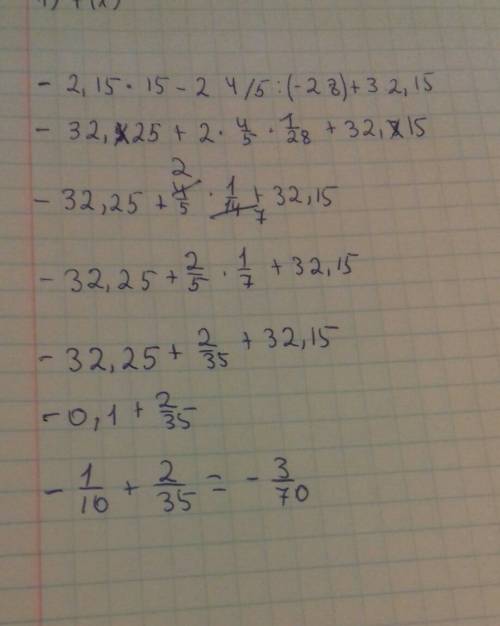 - 2,15 · 15 - 2 4/5 : (-28) + 32,15
- 32,25 + 2 · 4/5 · 1/28 + 32,15
- 32,25 + 2 4/5 · 1/14 7 + 32,15
- 32,25 + 2/5 · 1/7 + 32,15
- 32,25 + 2/35 + 32,15
- 0,1 + 2/35
- 1/10 + 2/35 = - 3/70